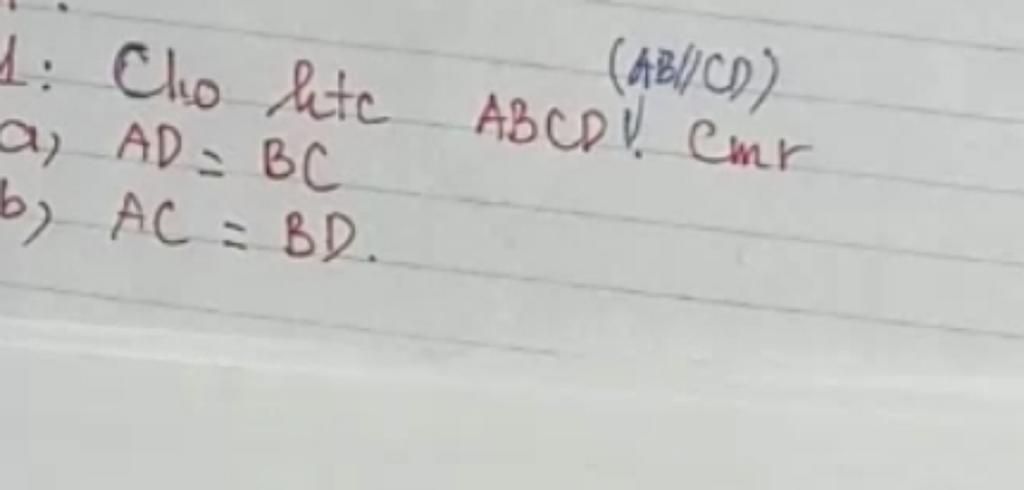 1: Cho htc ABCD (AB//CD). Cmr
a, AD = BC
b, AC = BD.